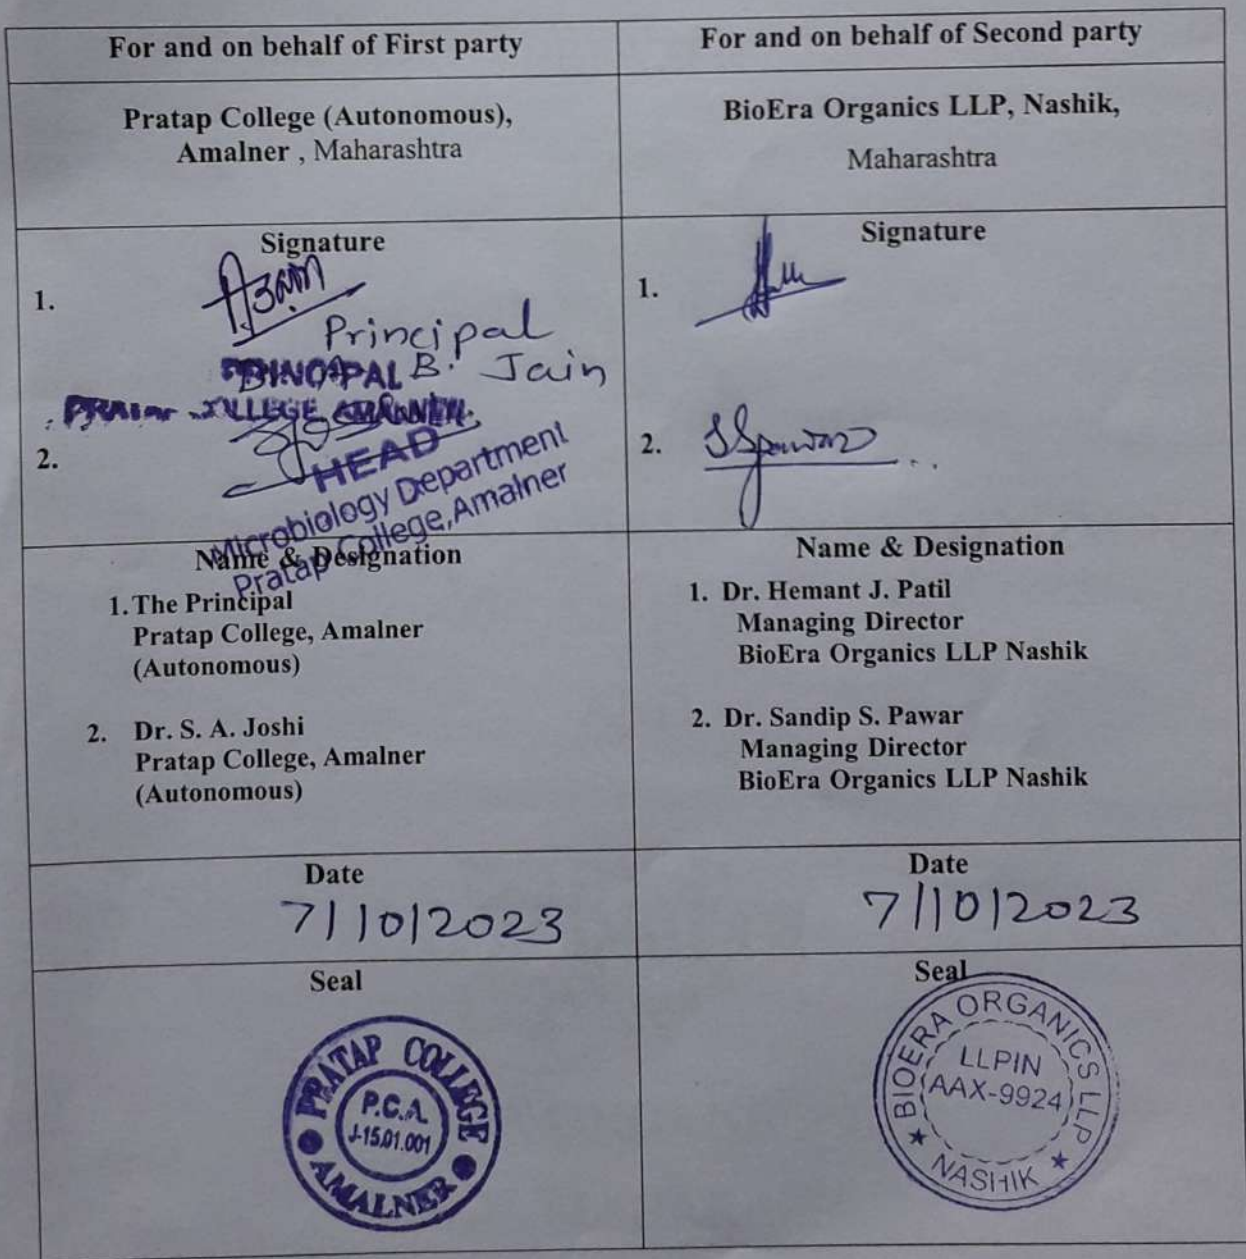 For and on behalf of First party
For and on behalf of Second party
Pratap College (Autonomous),
Amalner , Maharashtra
BioEra Organics LLP, Nashik,
Maharashtra
Signature
1.
Principal
PRINCIPAL B. Jain
COLLEGE
2.
HEAD
Microbiology Department
Pratap College, Amalner
Signature
1.
2.
Name & Designation
1. The Principal
Pratap College, Amalner
(Autonomous)
2. Dr. S. A. Joshi
Pratap College, Amalner
(Autonomous)
Name & Designation
1. Dr. Hemant J. Patil
Managing Director
BioEra Organics LLP Nashik
2. Dr. Sandip S. Pawar
Managing Director
BioEra Organics LLP Nashik
Date
7/10/2023
Date
7/10/2023
Seal
PRATAP COLLEGE
P.C.A.
J-15.01.001
AMALNER
Seal
BIOERA ORGANICS LLP
LLPIN
AAX-9924
NASHIK